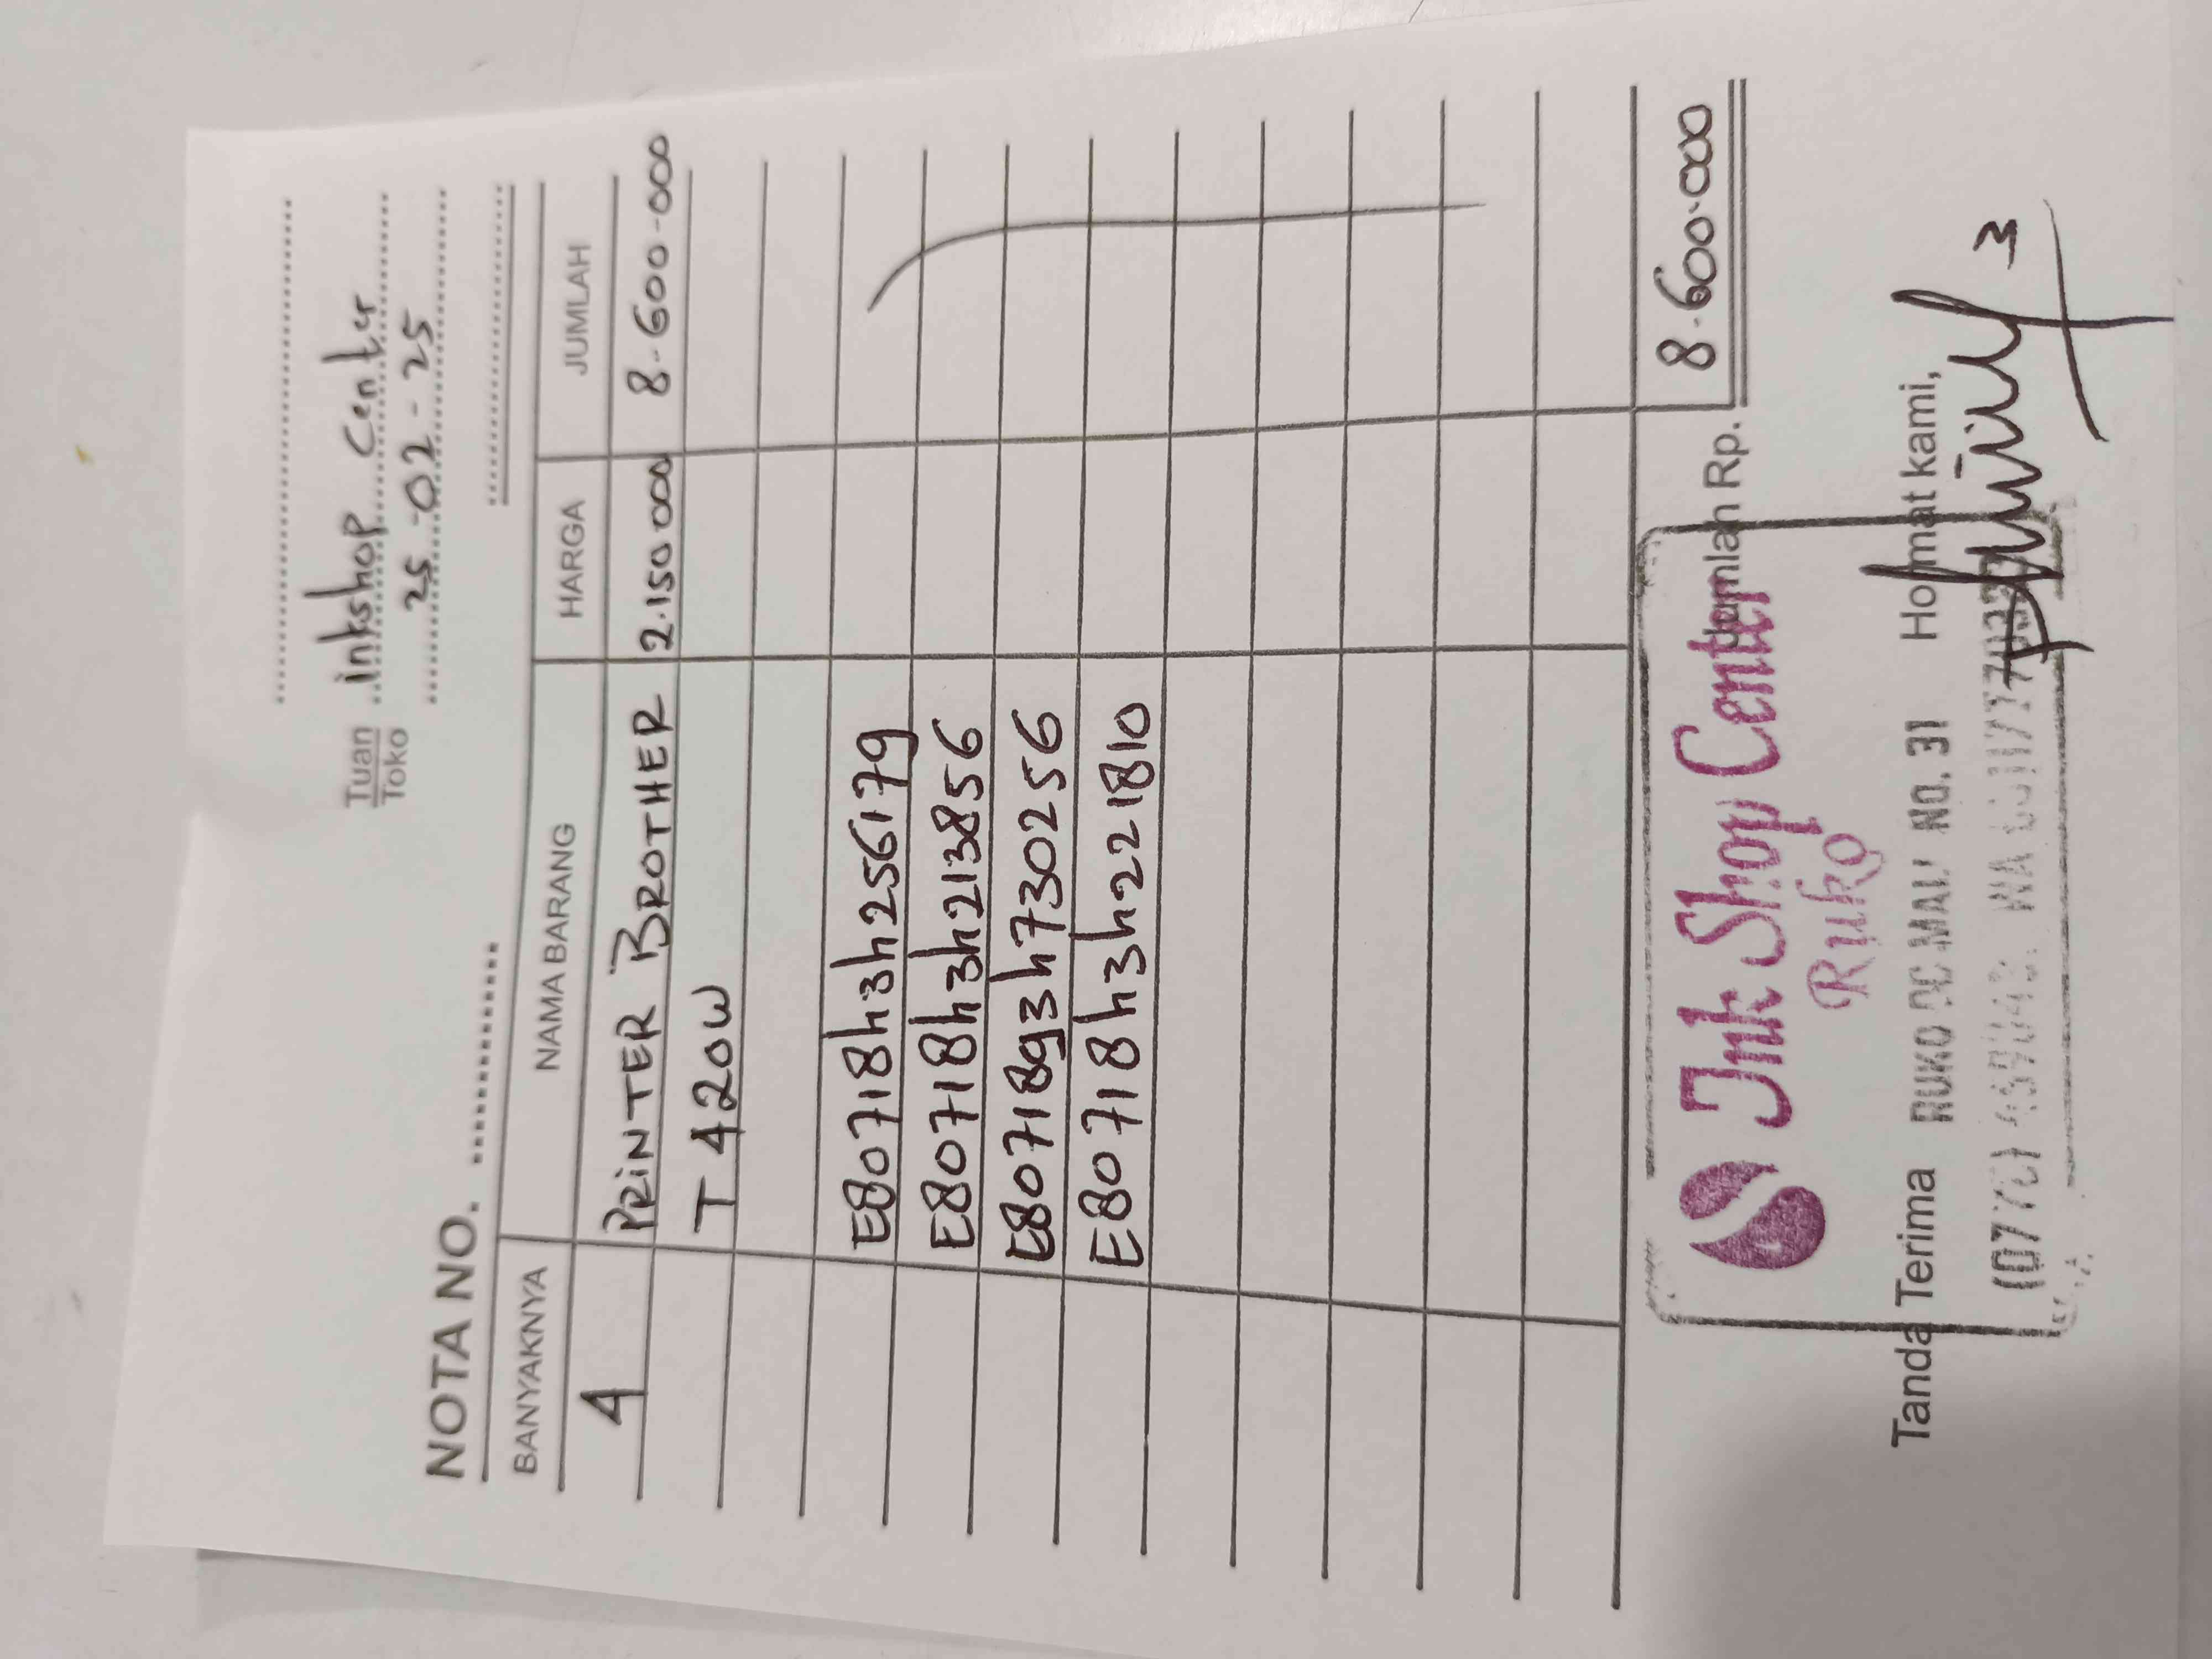 Tuan
Toko
inkshop Center
25-02-25
NOTA NO.
BANYAKNYA NAMA BARANG HARGA JUMLAH
4 PRiNTER BROTHER 2.150 000 8-600-000
T 420W
E80718h3h256179
E80718h3h213856
E80718g3h730256
E80718h3h221810
Jumlah Rp. 8.600.000
Ink Shop Center
Ruko
Tanda Terima Hormat kami,
RUKO DC MALL NO. 31
WA